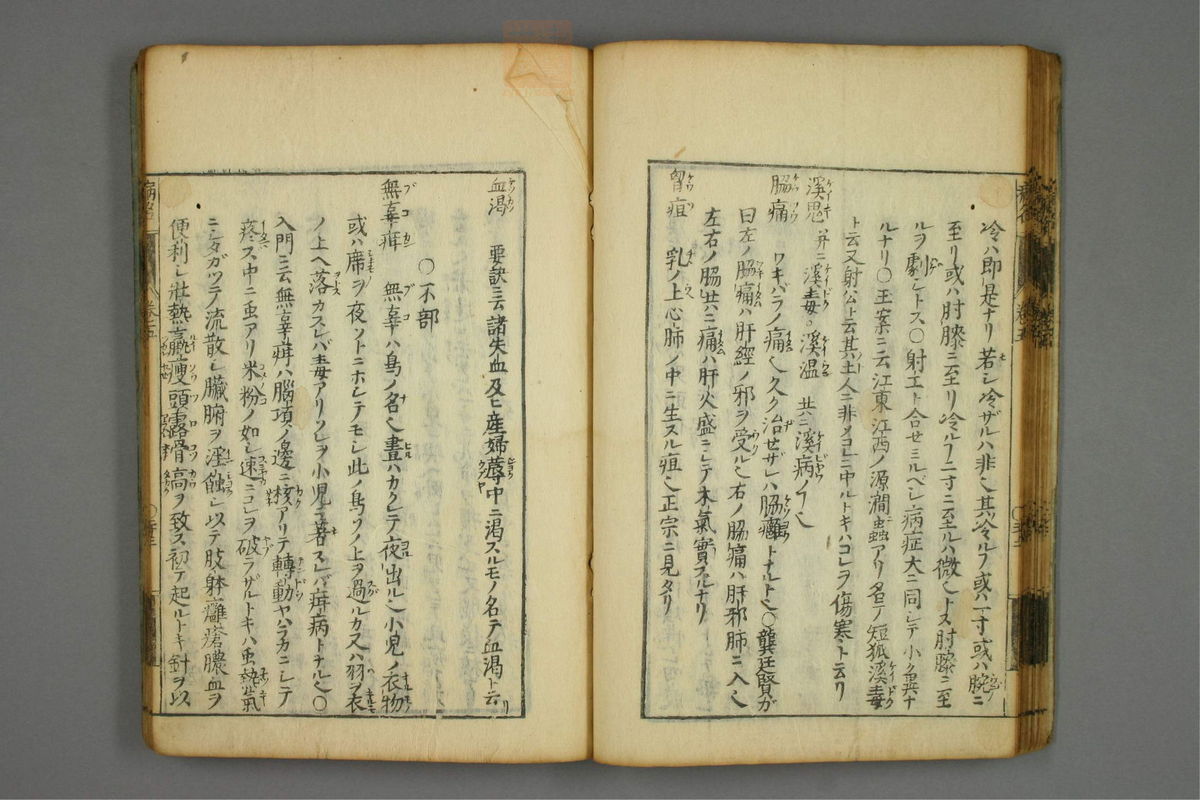 冷ハ即是ナリ若シ冷ザルハ非也其冷ルフ或ハ一寸或ハ腕ニ
至リ或ハ肘膝ニ至リ冷ル丁二寸ニ至ルハ微也トス肘膝ニ至
ルヲ劇シトス〇射工ト合セミルベシ病症大ニ同シテ小シ異ナ
ルナリ〇王案ニ云江東江西ノ源澗虫アリ名テ短狐溪毒
ト云又射公ト云其土人ニ非メコレニ中ルトキハコレヲ傷寒ト云リ
溪鬼 并ニ溪毒。溪温 共ニ溪病ノ丁也
脇痛 ワキバラノ痛也久ク治セザレハ脇癰トナルト也〇龔廷賢ガ
曰左ノ脇痛ハ肝經ノ邪ヲ受ル也右ノ脇痛ハ肝邪肺ニ入也
左右ノ脇共ニ痛ハ肝火盛ニシテ木氣實スルナリ
胷疽 乳ノ上心肺ノ中ニ生スル疽也正宗ニ見タリ
血渇 要訣ニ云諸失血及ヒ産婦蓐中ニ渇スルモノ名テ血渇ト云リ
〇不部
無辜疳 無辜ハ鳥ノ名也晝ハカクレテ夜出ル也小児ノ衣物
或ハ席ヲ夜ソトニホシテモシ此ノ鳥ソノ上ヲ過ルカ又ハ羽ヲ衣
ノ上ヘ落カスレバ毒アリソレヲ小児ニ著スレバ疳病トナル也〇
入門ニ云無辜疳ハ腦項ノ邊ニ核アリテ轉動ヤハラカニシテ
疼ス中ニ虫アリ米粉ノ如シ速ニコレヲ破ラザルトキハ虫熱氣
ニシタガツテ流散シ臓腑ヲ淫蝕シ以テ肢躰癰瘡膿血ヲ
便利シ壯熱羸痩頭露骨高ヲ致ス初テ起ルトキ針ヲ以